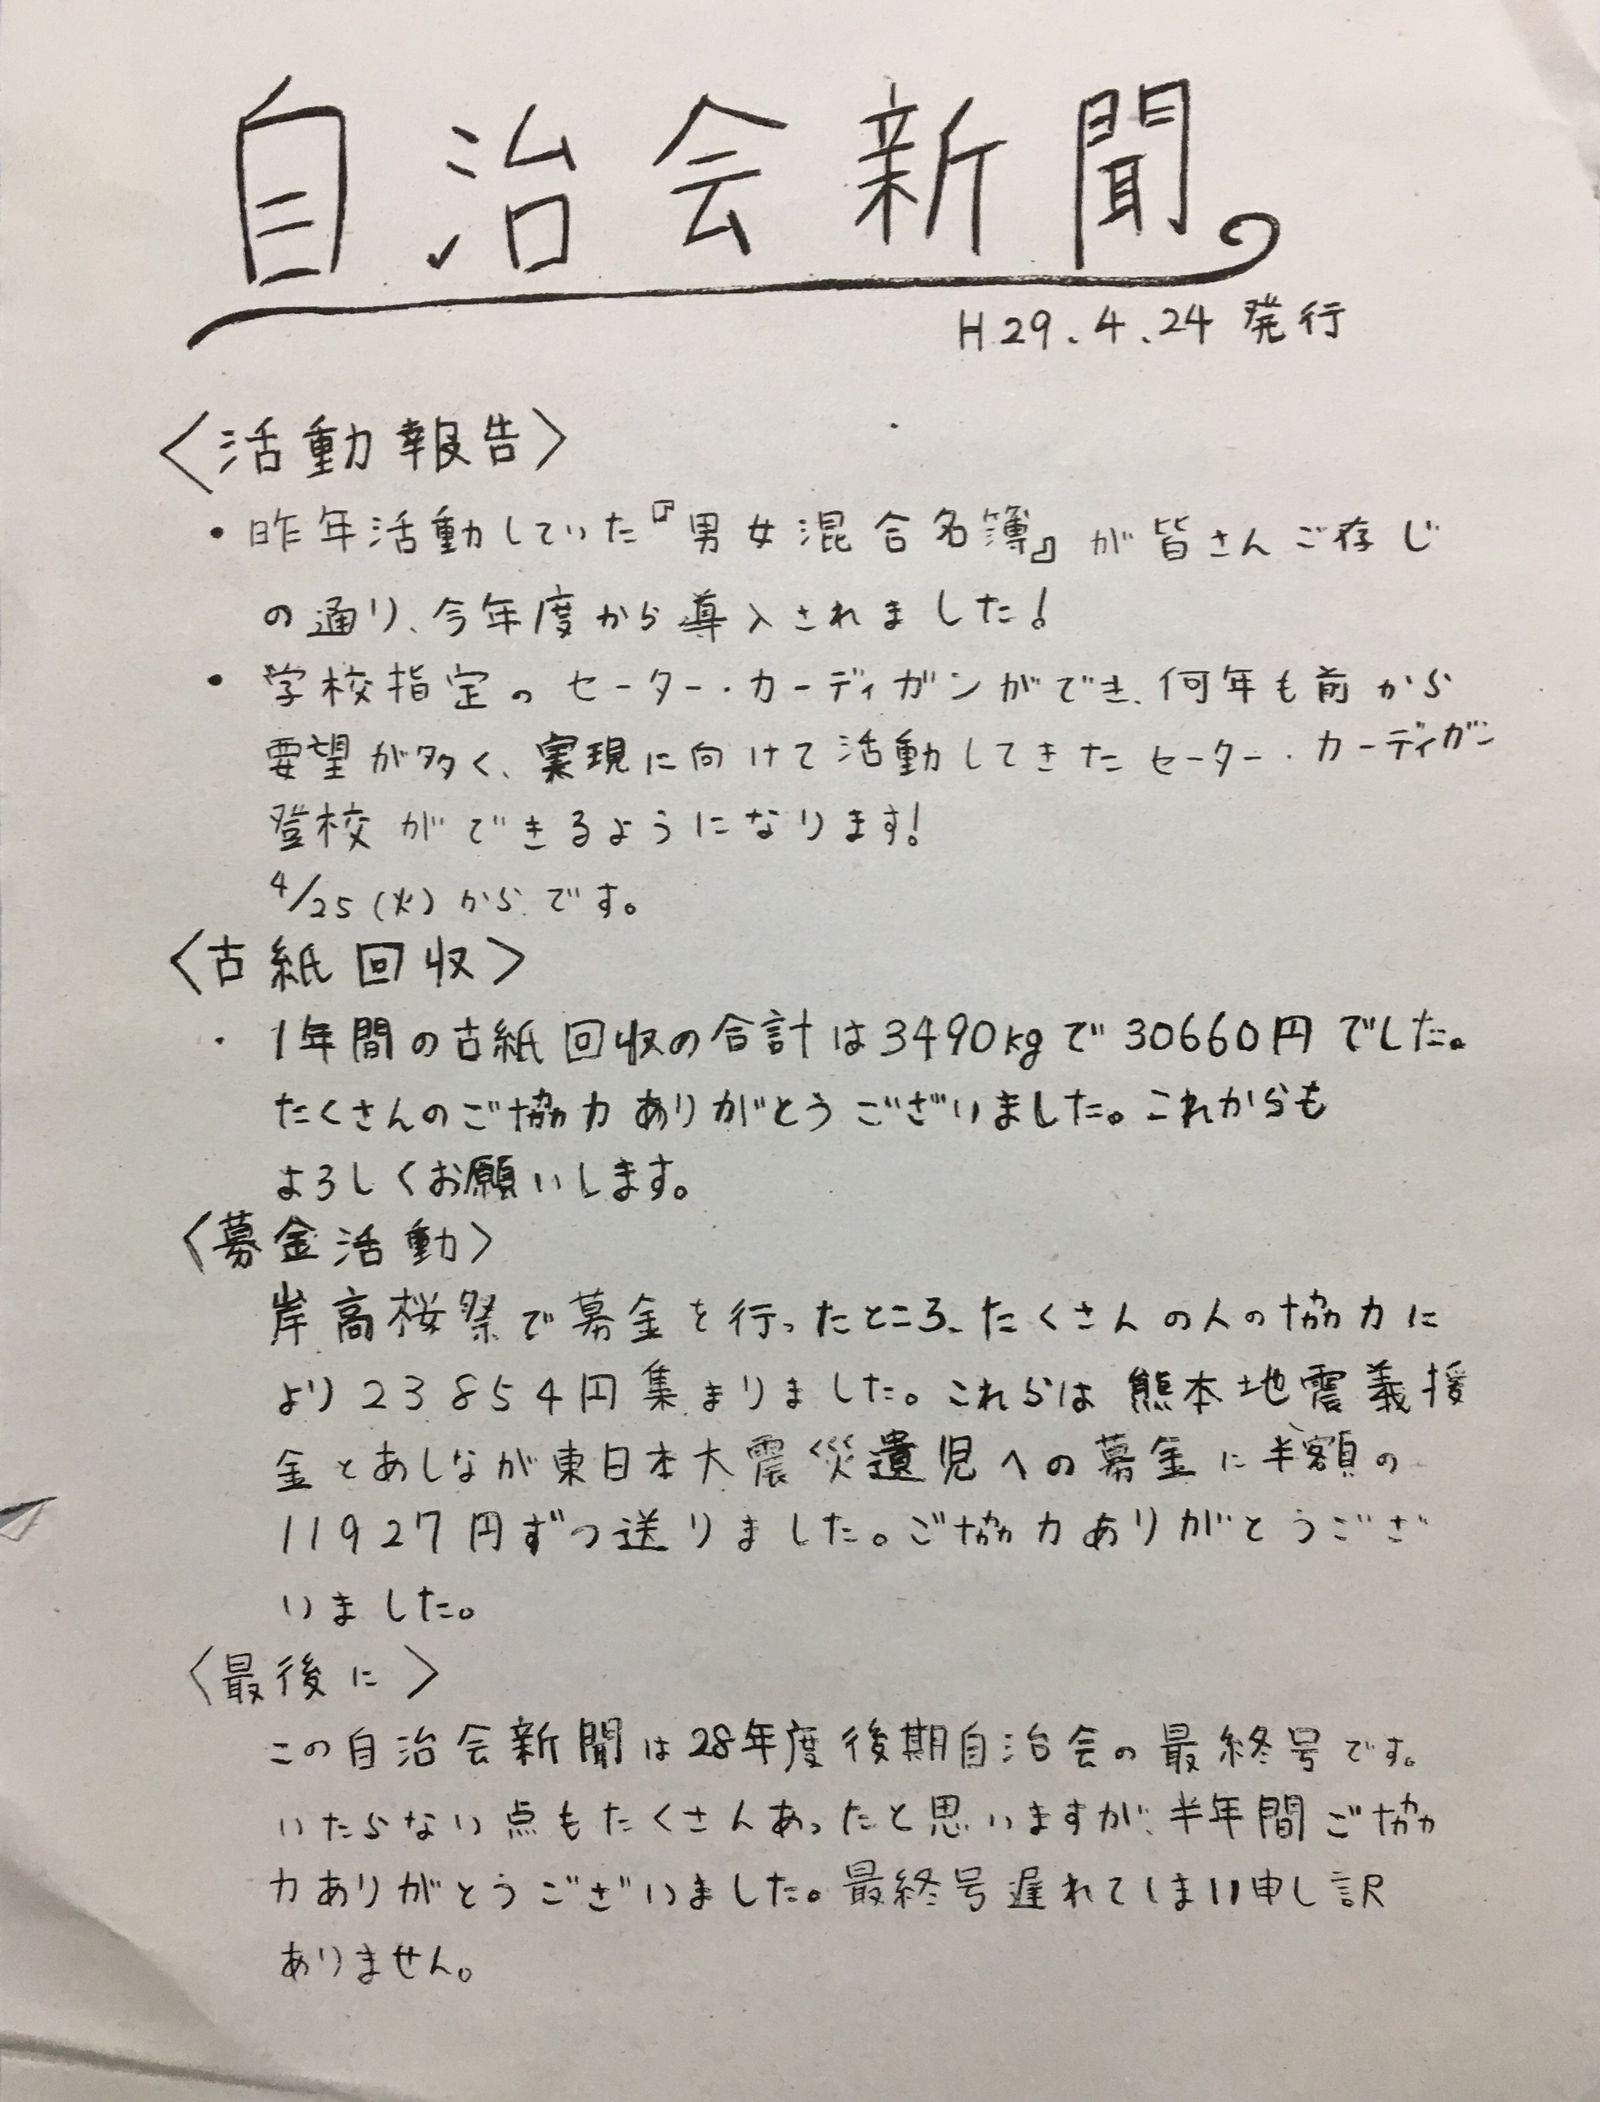 自治会新聞
H29.4.24 発行
〈活動報告〉
・昨年活動していた『男女混合名簿』が皆さんご存じ
の通り、今年度から導入されました!
・学校指定のセーター・カーディガンができ、何年も前から
要望が多く、実現に向けて活動してきたセーター・カーディガン
登校ができるようになります!
4/25(火)からです。
〈古紙回収〉
・1年間の古紙回収の合計は3490kgで30660円でした。
たくさんのご協力ありがとうございました。これからも
よろしくお願いします。
〈募金活動〉
岸高桜祭で募金を行ったところ、たくさんの人の協力に
より23854円集まりました。これらは熊本地震義援
金とあしなが東日本大震災遺児への募金に半額の
11927円ずつ送りました。ご協力ありがとうござ
いました。
〈最後に〉
この自治会新聞は28年度後期自治会の最終号です。
いたらない点もたくさんあったと思いますが、半年間ご協
力ありがとうございました。最終号遅れてしまい申し訳
ありません。